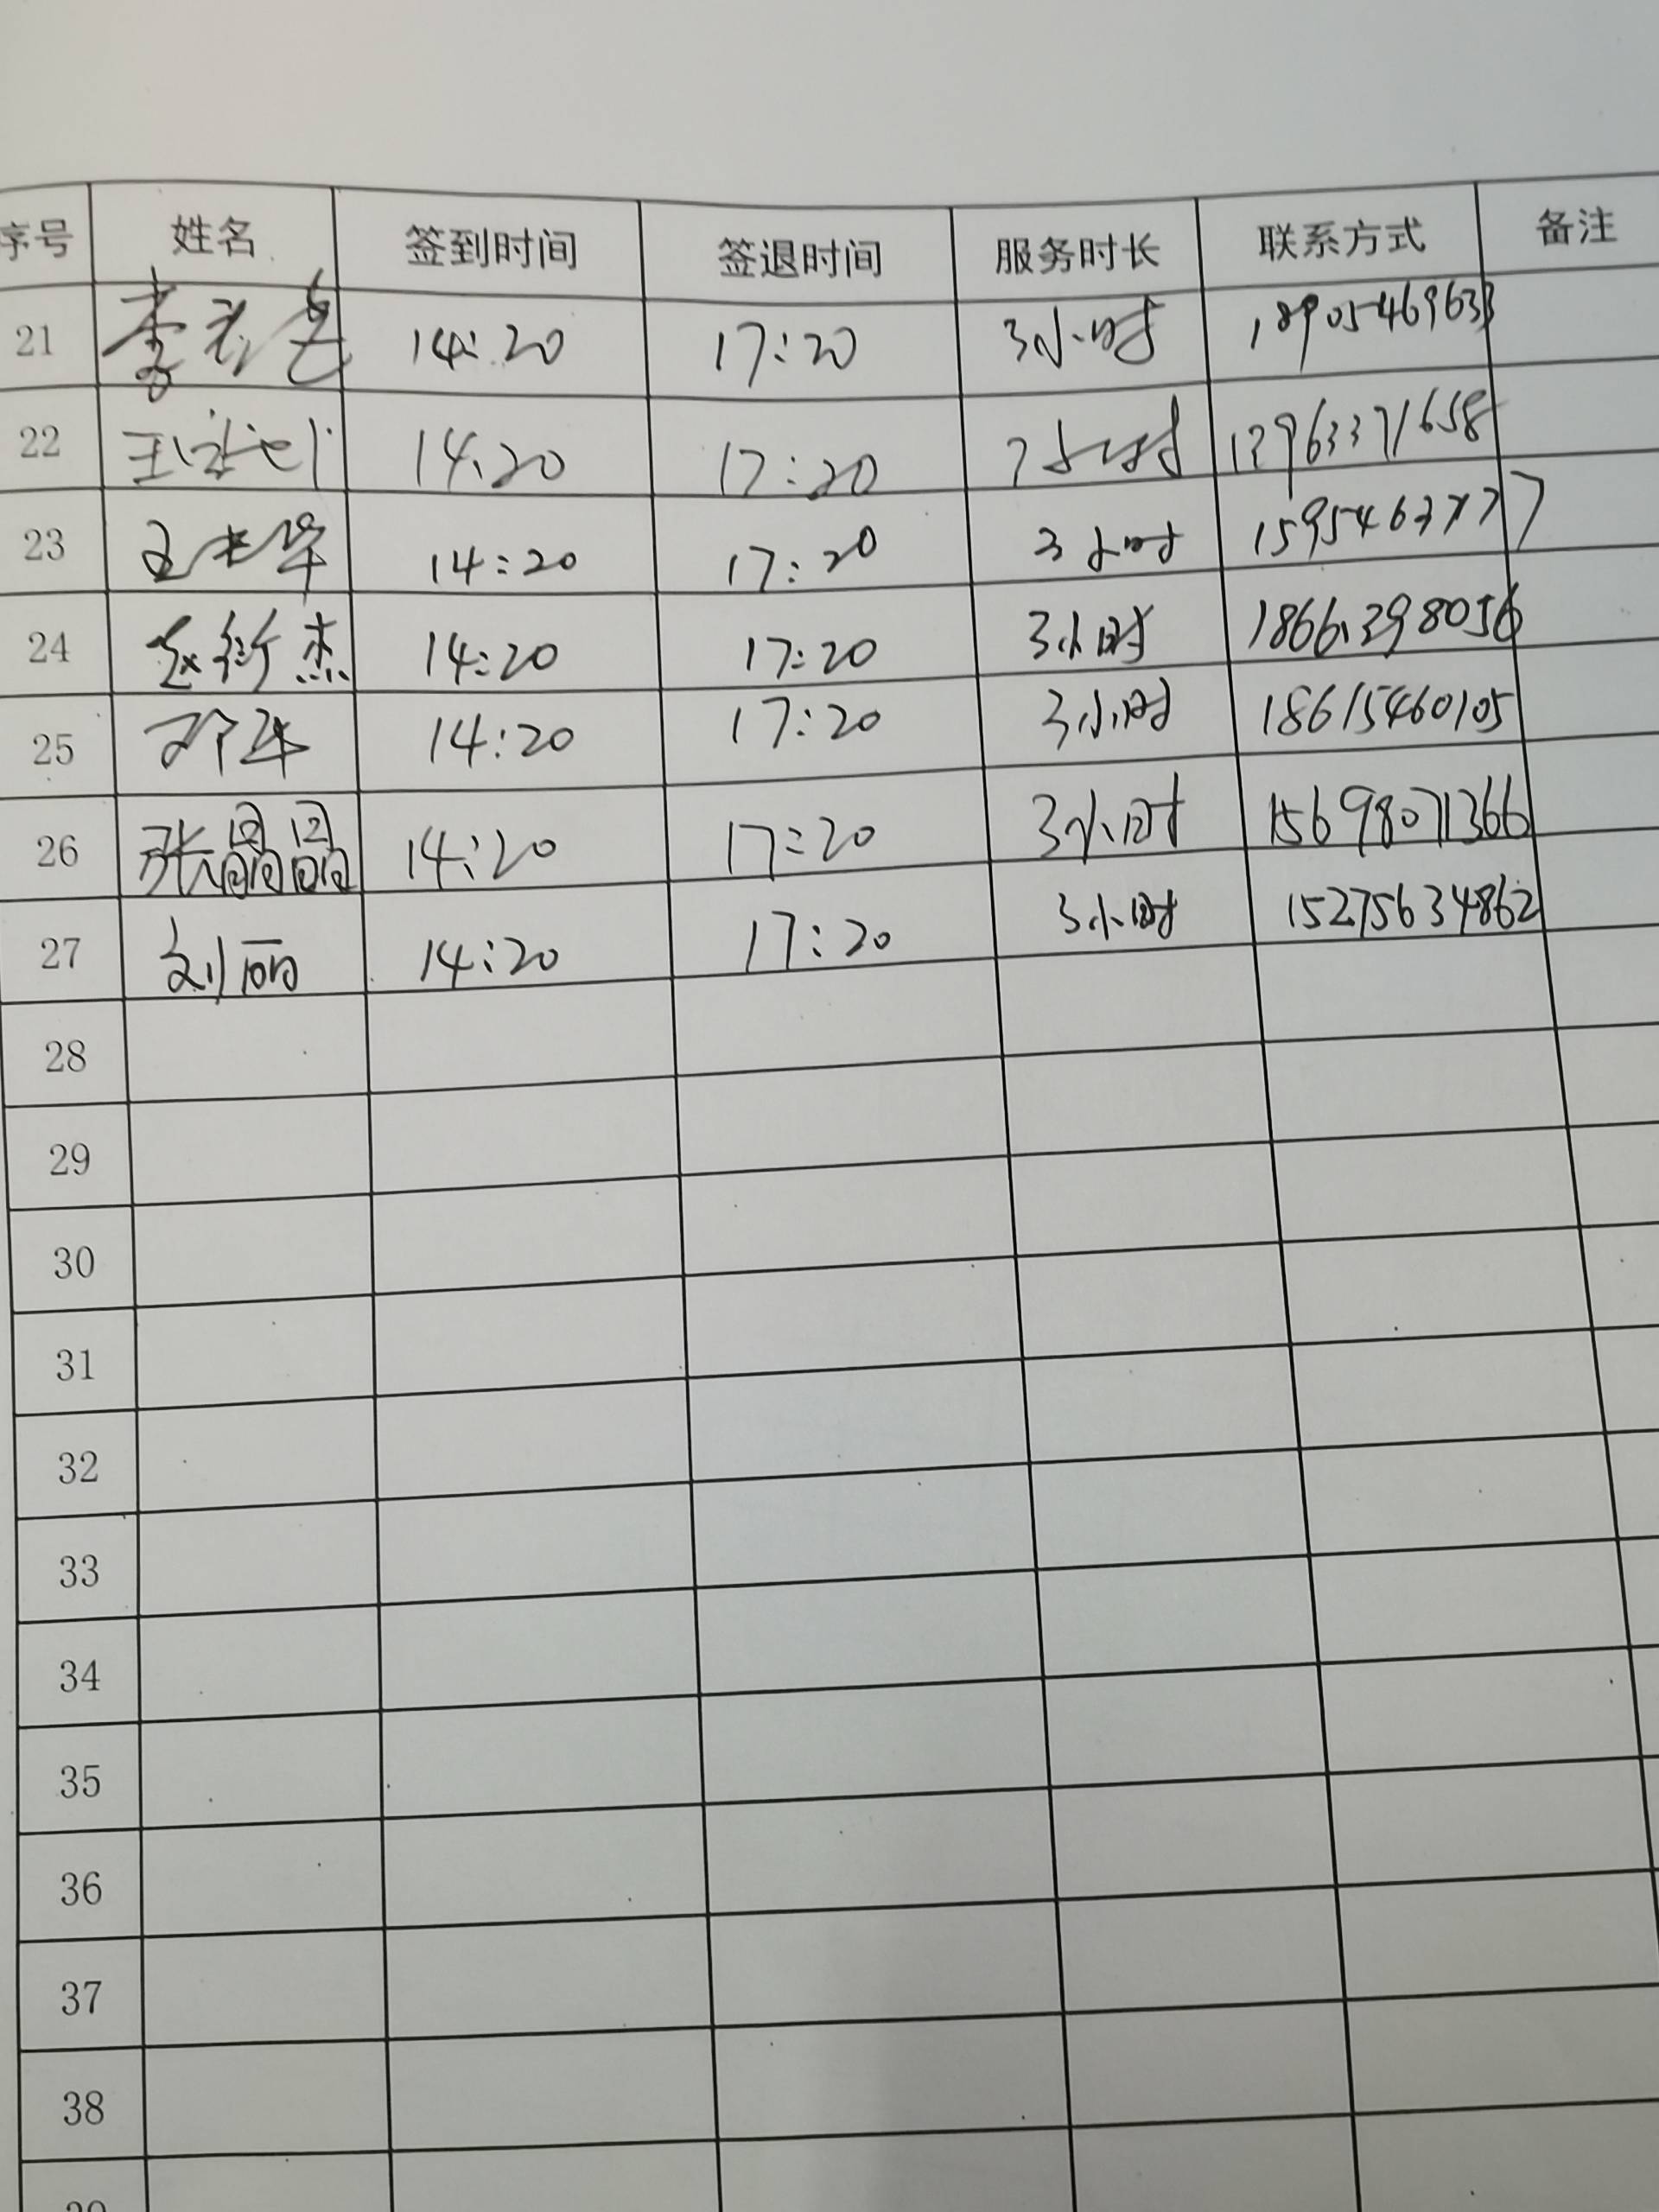 序号 姓名 签到时间 签退时间 服务时长 联系方式 备注
21 李 14:20 17:20 3小时 18905469633
22 14:20 17:20 小时
23 14:20 17:20 3小时
24 赵衍杰 14:20 17:20 3小时 18661398056
25 14:20 17:20 3小时 18615460105
26 张晶晶 14:20 17:20 3小时 15698071366
27 刘丽 14:20 17:20 3小时 15275634862
28
29
30
31
32
33
34
35
36
37
38